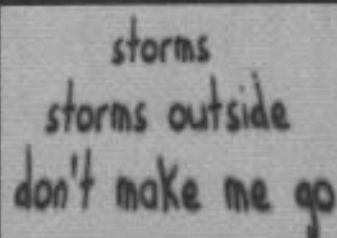 storms
storms outside
don't make me go